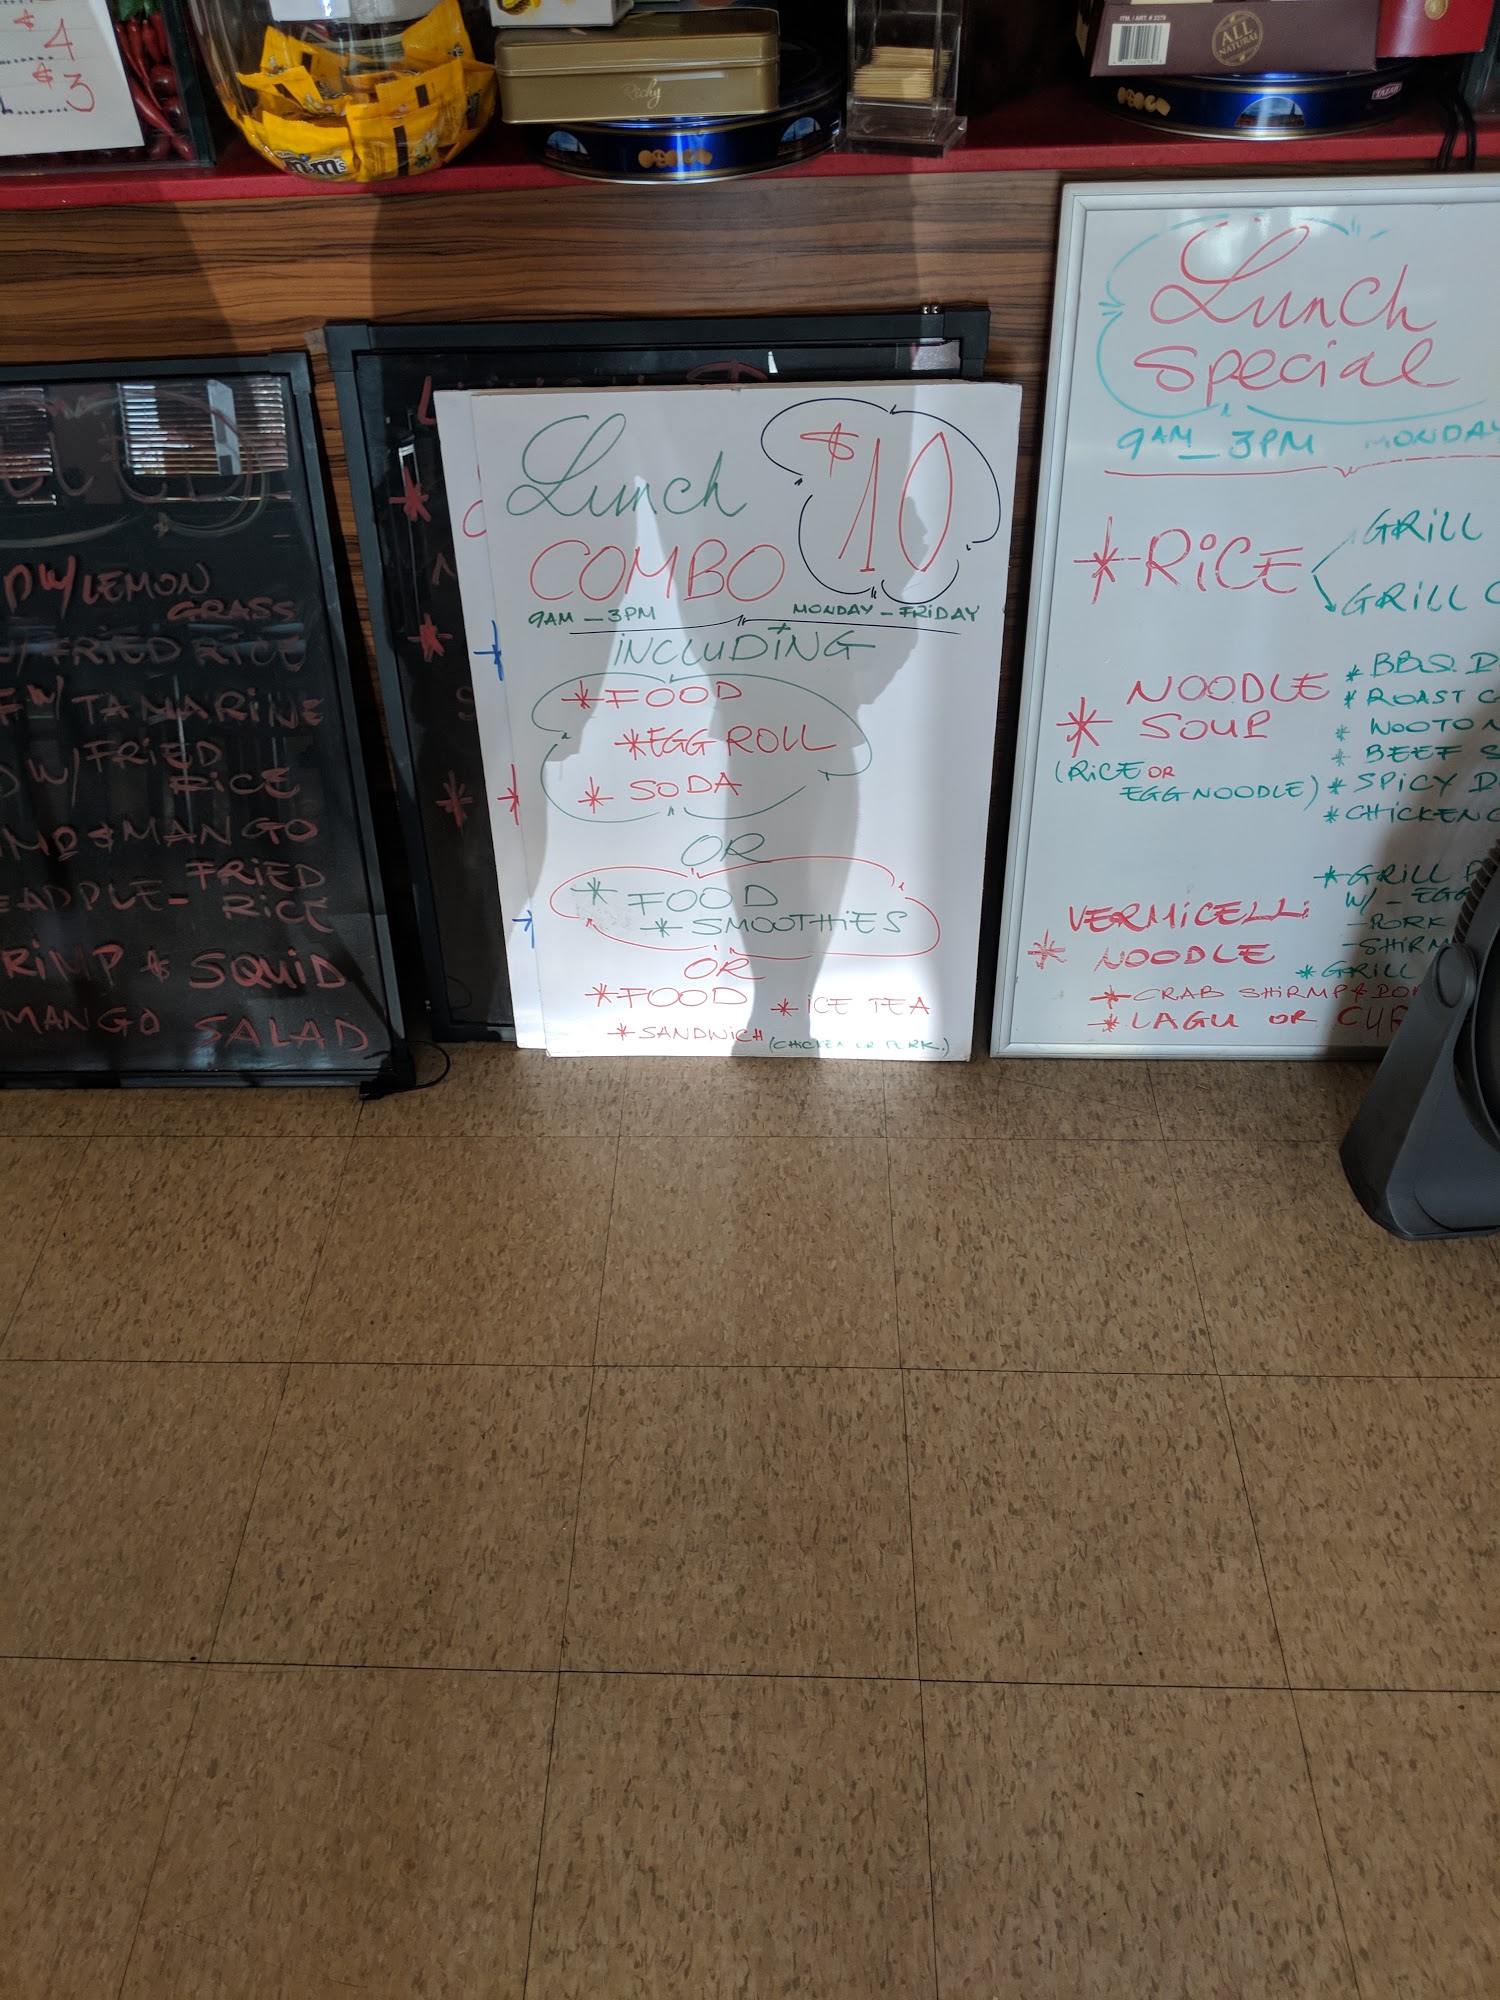 $4
$3
m&m's
Richy
ITM. / ART. # 2279
ALL
NATURAL
W/LEMON
GRASS
W/FRIED RICE
W/TAMARINE
W/FRIED
RICE
&MANGO
FRIED
RICE
SQUID
MANGO SALAD
Lunch $10
COMBO
9AM _ 3PM MONDAY _ FRIDAY
INCLUDING
*FOOD
*EGG ROLL
* SODA
OR
* FOOD
* SMOOTHIES
OR
*FOOD * ICE TEA
* SANDWICH (CHICKEN OR PORK.)
Lunch
Special
9AM _ 3PM MONDAY
*RICE GRILL
GRILL
NOODLE
* SOUP
(RICE OR
EGG NOODLE)
* BBQ
* ROAST
* WOOTON
* BEEF
* SPICY
* CHICKEN
VERMICELLI
* NOODLE
*GRILL
W/ - EGG
- PORK
*GRILL
*CRAB SHIRMP &
*LAGU OR